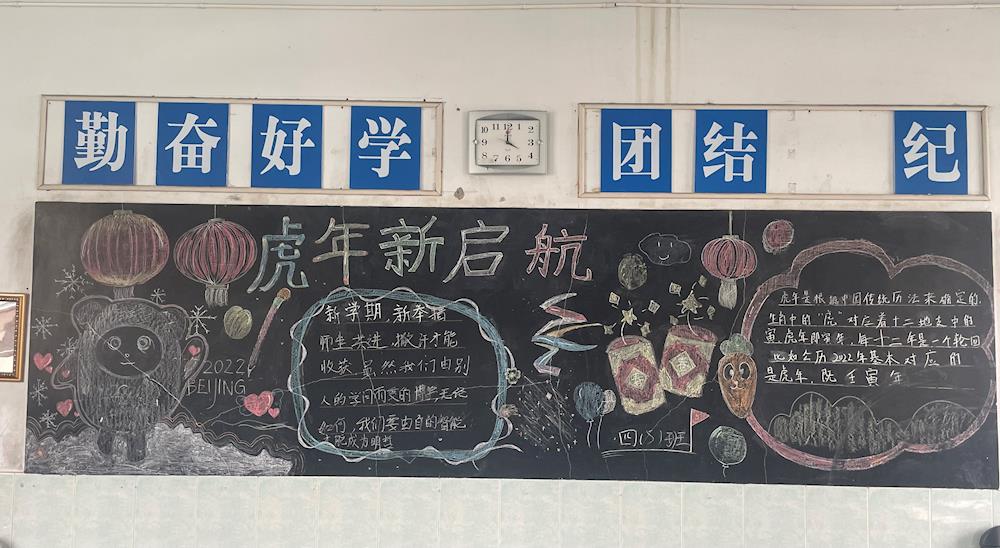 勤奋好学
团结 纪
虎年新启航
2022
BEIJING
新学期,新举措
师生共进,撒汗才能
收获.虽然我们由别
人的学问而变的博学,无论
如何,我们要由自的智能
才能成为明哲
四(5)班
虎年是根据中国传统历法来确定的,
生肖中的"虎"对应着十二地支中的
寅,虎年即寅年,每十二年是一个轮回
比如公历2022年基本对应的
是虎年,既壬寅年
12
1
2
3
4
5
6
7
8
9
10
11